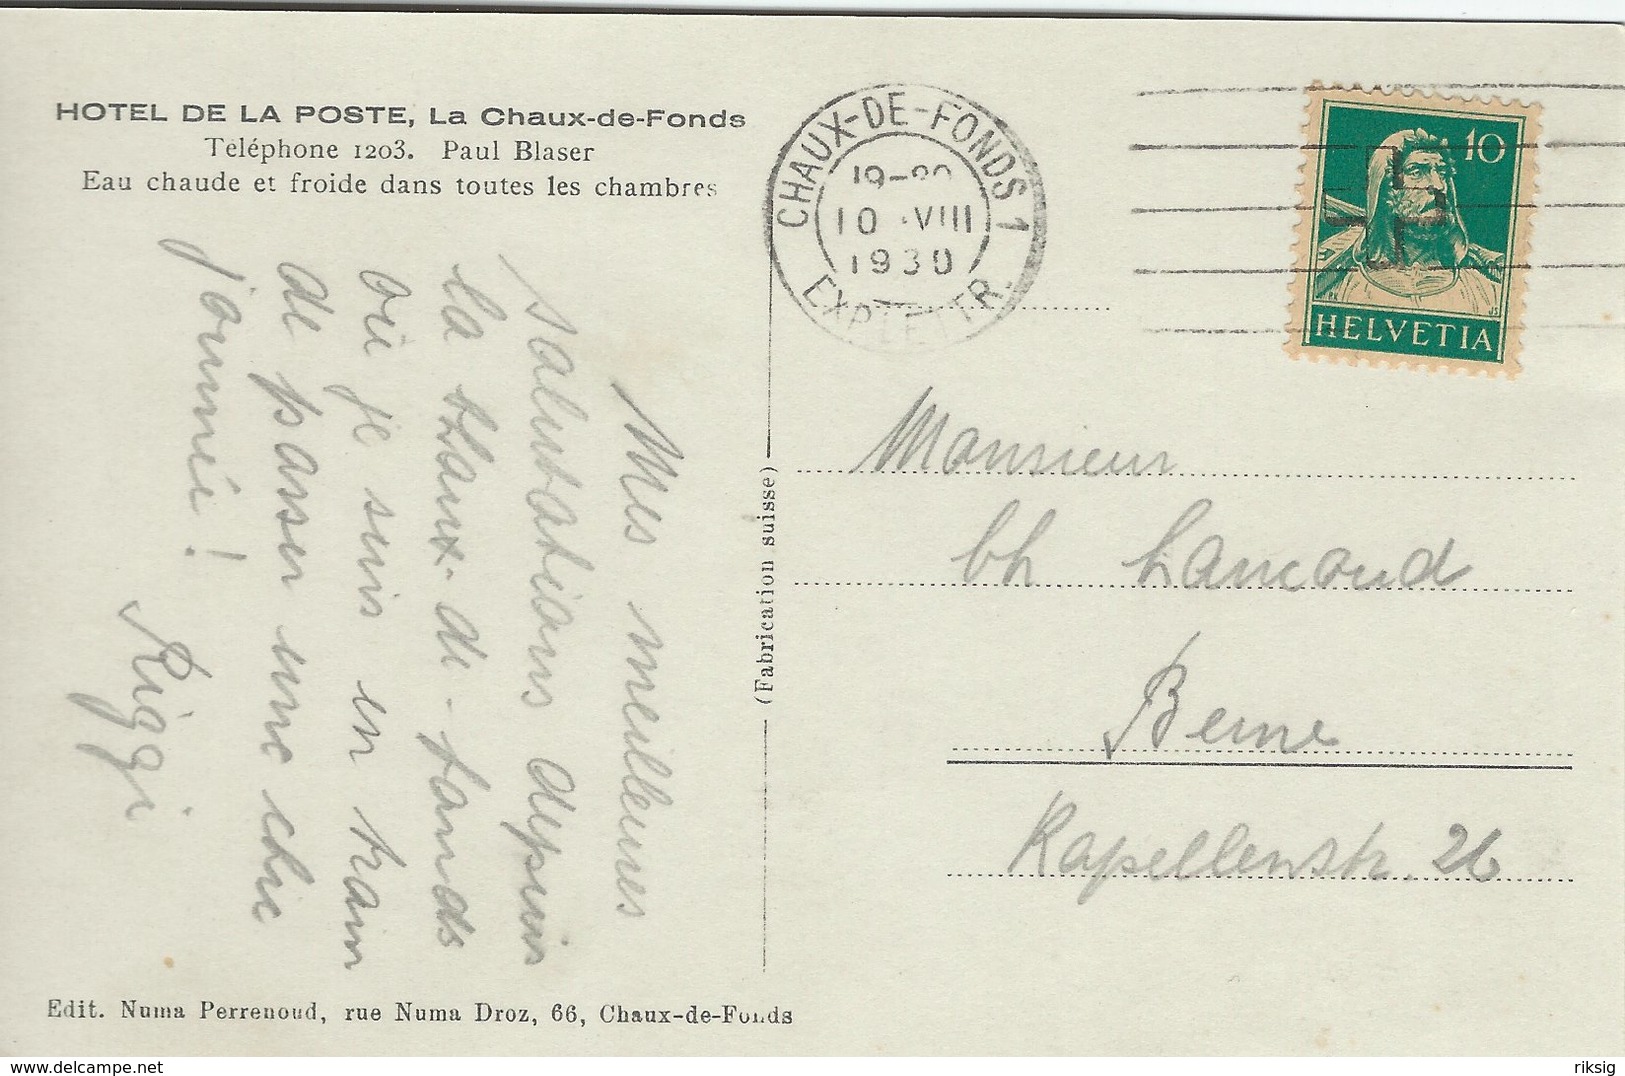 HOTEL DE LA POSTE, La Chaux-de-Fonds
Teléphone 1203. Paul Blaser
Eau chaude et froide dans toutes les chambres
CHAUX-DE-FONDS 1
10.VIII
1930
EXP. LETTR.
10
HELVETIA
Mes meilleures
salutations depuis
la Chaux-de-fonds
où je suis en train
de passer une chic
journée!
Riggi
(Fabrication suisse)
Monsieur
Ch Lancoud
Berne
Kapellenstr. 26
Edit. Numa Perrenoud, rue Numa Droz, 66, Chaux-de-Fonds
riksig